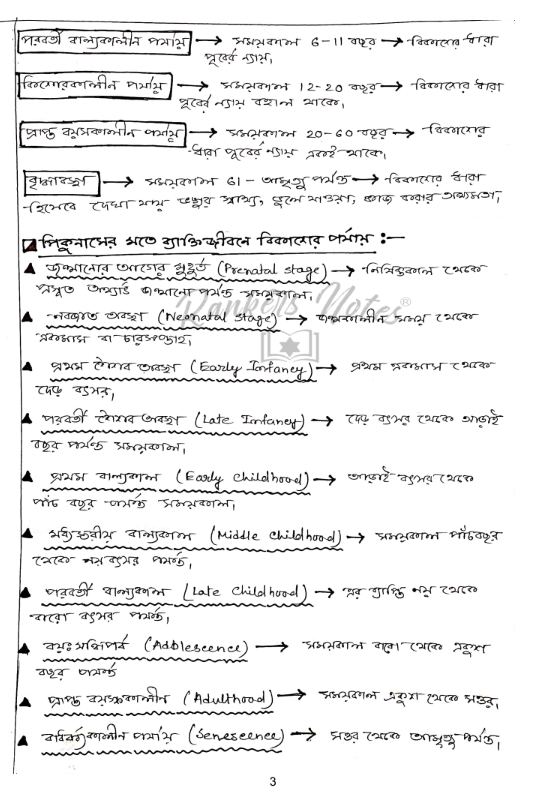 পরবর্তী বাল্যকালীন পর্যায় → সময়কাল 6-11 বছর → বিকাশের ধারা
পূর্বের ন্যায়,
কিশোরকালীন পর্যায় → সময়কাল 12-20 বছর → বিকাশের ধারা
পূর্বের ন্যায় বহাল থাকে,
প্রাপ্ত বয়সকালীন পর্যায় → সময়কাল 20-60 বছর → বিকাশের
ধারা পূর্বের ন্যায় একই থাকে,
বৃদ্ধাবস্থা → সময়কাল 61 - আমৃত্যু পর্যন্ত → বিকাশের ধারা
হিসেবে দেখা যায় ভঙ্গুর স্বাস্থ্য, ভুলে যাওয়া, কাজ করার অক্ষমতা,
পিকুনাসের মতে ব্যক্তিজীবনে বিকাশের পর্যায় :-
▲ জন্মানোর আগের মুহূর্ত (Prenatal stage) → নিষিক্তকাল থেকে
প্রসূত অর্থাৎ জন্মানো পর্যন্ত সময়কাল,
Rankers Notes®
▲ নবজাত অবস্থা (Neonatal Stage) → জন্মকালীন সময় থেকে
একমাস বা চারসপ্তাহ,
▲ প্রথম শৈশব অবস্থা (Early Infancy) → প্রথম একমাস থেকে
দেড় বৎসর,
▲ পরবর্তী শৈশব অবস্থা (Late Infancy) → দেড় বৎসর থেকে আড়াই
বছর পর্যন্ত সময়কাল,
▲ প্রথম বাল্যকাল (Early Childhood) → আড়াই বৎসর থেকে
পাঁচ বছর পর্যন্ত সময়কাল,
▲ মধ্যস্তরীয় বাল্যকাল (Middle Childhood) → সময়কাল পাঁচবছর
থেকে নয় বৎসর পর্যন্ত,
▲ পরবর্তী বাল্যকাল (Late Childhood) → এর ব্যাপ্তি নয় থেকে
বারো বৎসর পর্যন্ত,
▲ বয়ঃসন্ধিপর্ব (Adolescence) → সময়কাল বারো থেকে একুশ
বছর পর্যন্ত
▲ প্রাপ্ত বয়স্ককালীন (Adulthood) → সময়কাল একুশ থেকে সত্তর,
▲ বার্ধক্যকালীন পর্যায় (Senescence) → সত্তর থেকে আমৃত্যু পর্যন্ত,
3